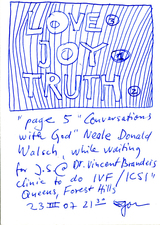 LOVE
JOY
TRUTH
"page 5 "Conversations
with God" Neale Donald
Walsch, while waiting
for J.S @ Dr. Vincent Brandeis
clinic to do IVF/ICSI"
Queens, Forest Hills
23 III 07 21